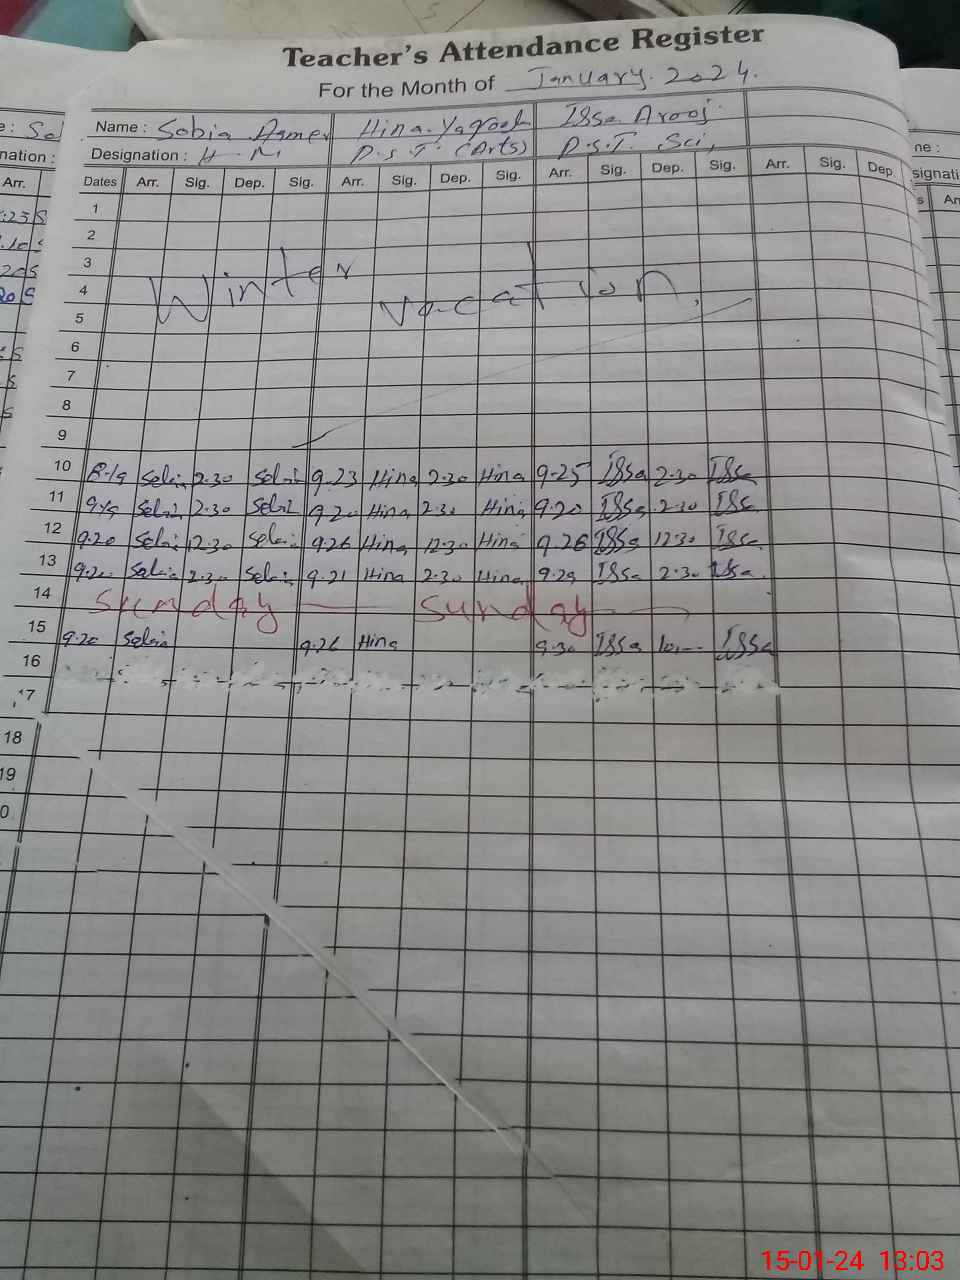 Teacher's Attendance Register
For the Month of January. 2024.
Name : Sobia Hina. Yaqoob Issa Arooj.
Designation : H. M P.S.T. (Arts) P.S.T. Sci,
Dates Arr. Sig. Dep. Sig. Arr. Sig. Dep. Sig. Arr. Sig. Dep. Sig. Arr. Sig. Dep.
1
2
3
4 Winter vacation,
5
6
7
8
9
10 2.30 9.23 Hina 2.30 Hina 9.25 Issa 2.30 Issa
11 2.30 9.20 Hina 2.30 Hina 9.20 Issa 2.30 Issa
12 9.20 12.30 9.26 Hina 12.30 Hina 9.26 Issa 12.30 Issa
13 2.30 9.21 Hina 2.30 Hina 9.29 Issa 2.30 Issa
14 Sunday — Sunday —
15 9.20 9.26 Hina 9.30 Issa Issa
16
17
18
19
0
15-01-24 13:03